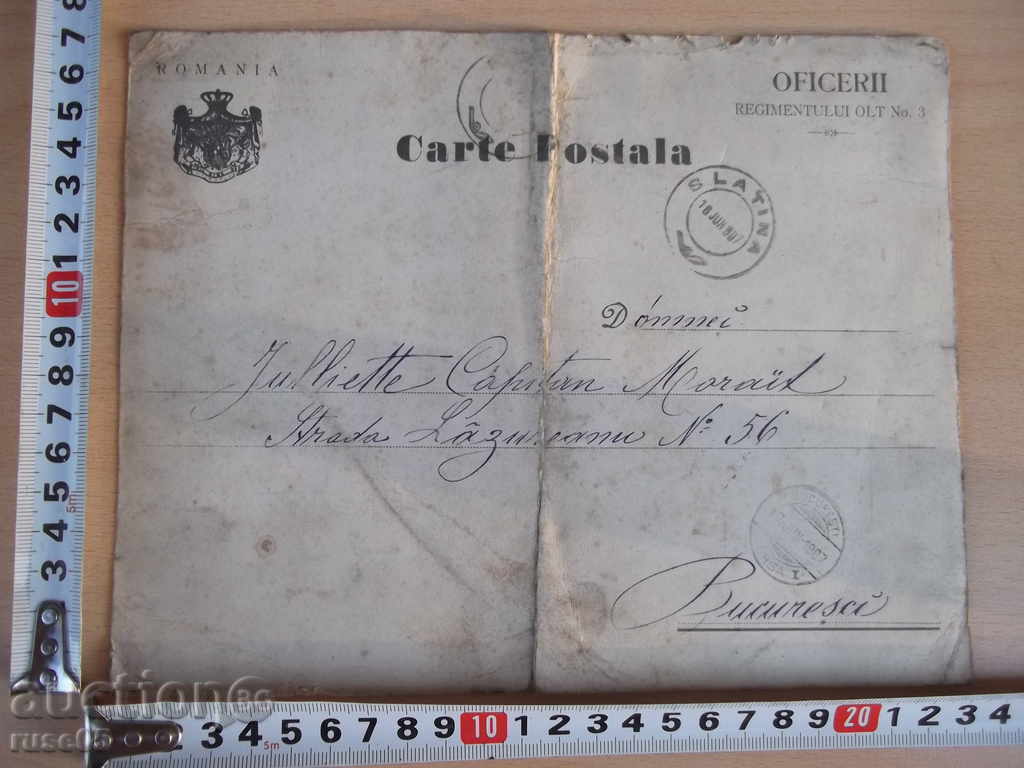 ROMANIA
OFICERII
REGIMENTULUI OLT No. 3
Carte Postala
SLATINA
18 JUN 907
Dómnei
Julliette Căpitan Morait
Strada Lăzureanu No. 56
1907
Bucuresci
auction
ruse05
8 7 6 5 4 3 2 1 10 9 8 7 6 5 4 3
5m
2 3 4 5 6 7 8 9 10 1 2 3 4 5 6 7 8 9 20 1 2 3 4
5m